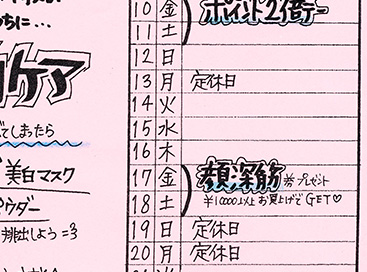 ちに…
ケア
てしまったら
美白マスク
ウダー
排出しよう=3
10 金 ポイント2倍デー
11 土
12 日
13 月 定休日
14 火
15 水
16 木
17 金 顔深筋 券プレゼント
18 土 ¥10000以上お買上げでGET♡
19 日 定休日
20 月 定休日